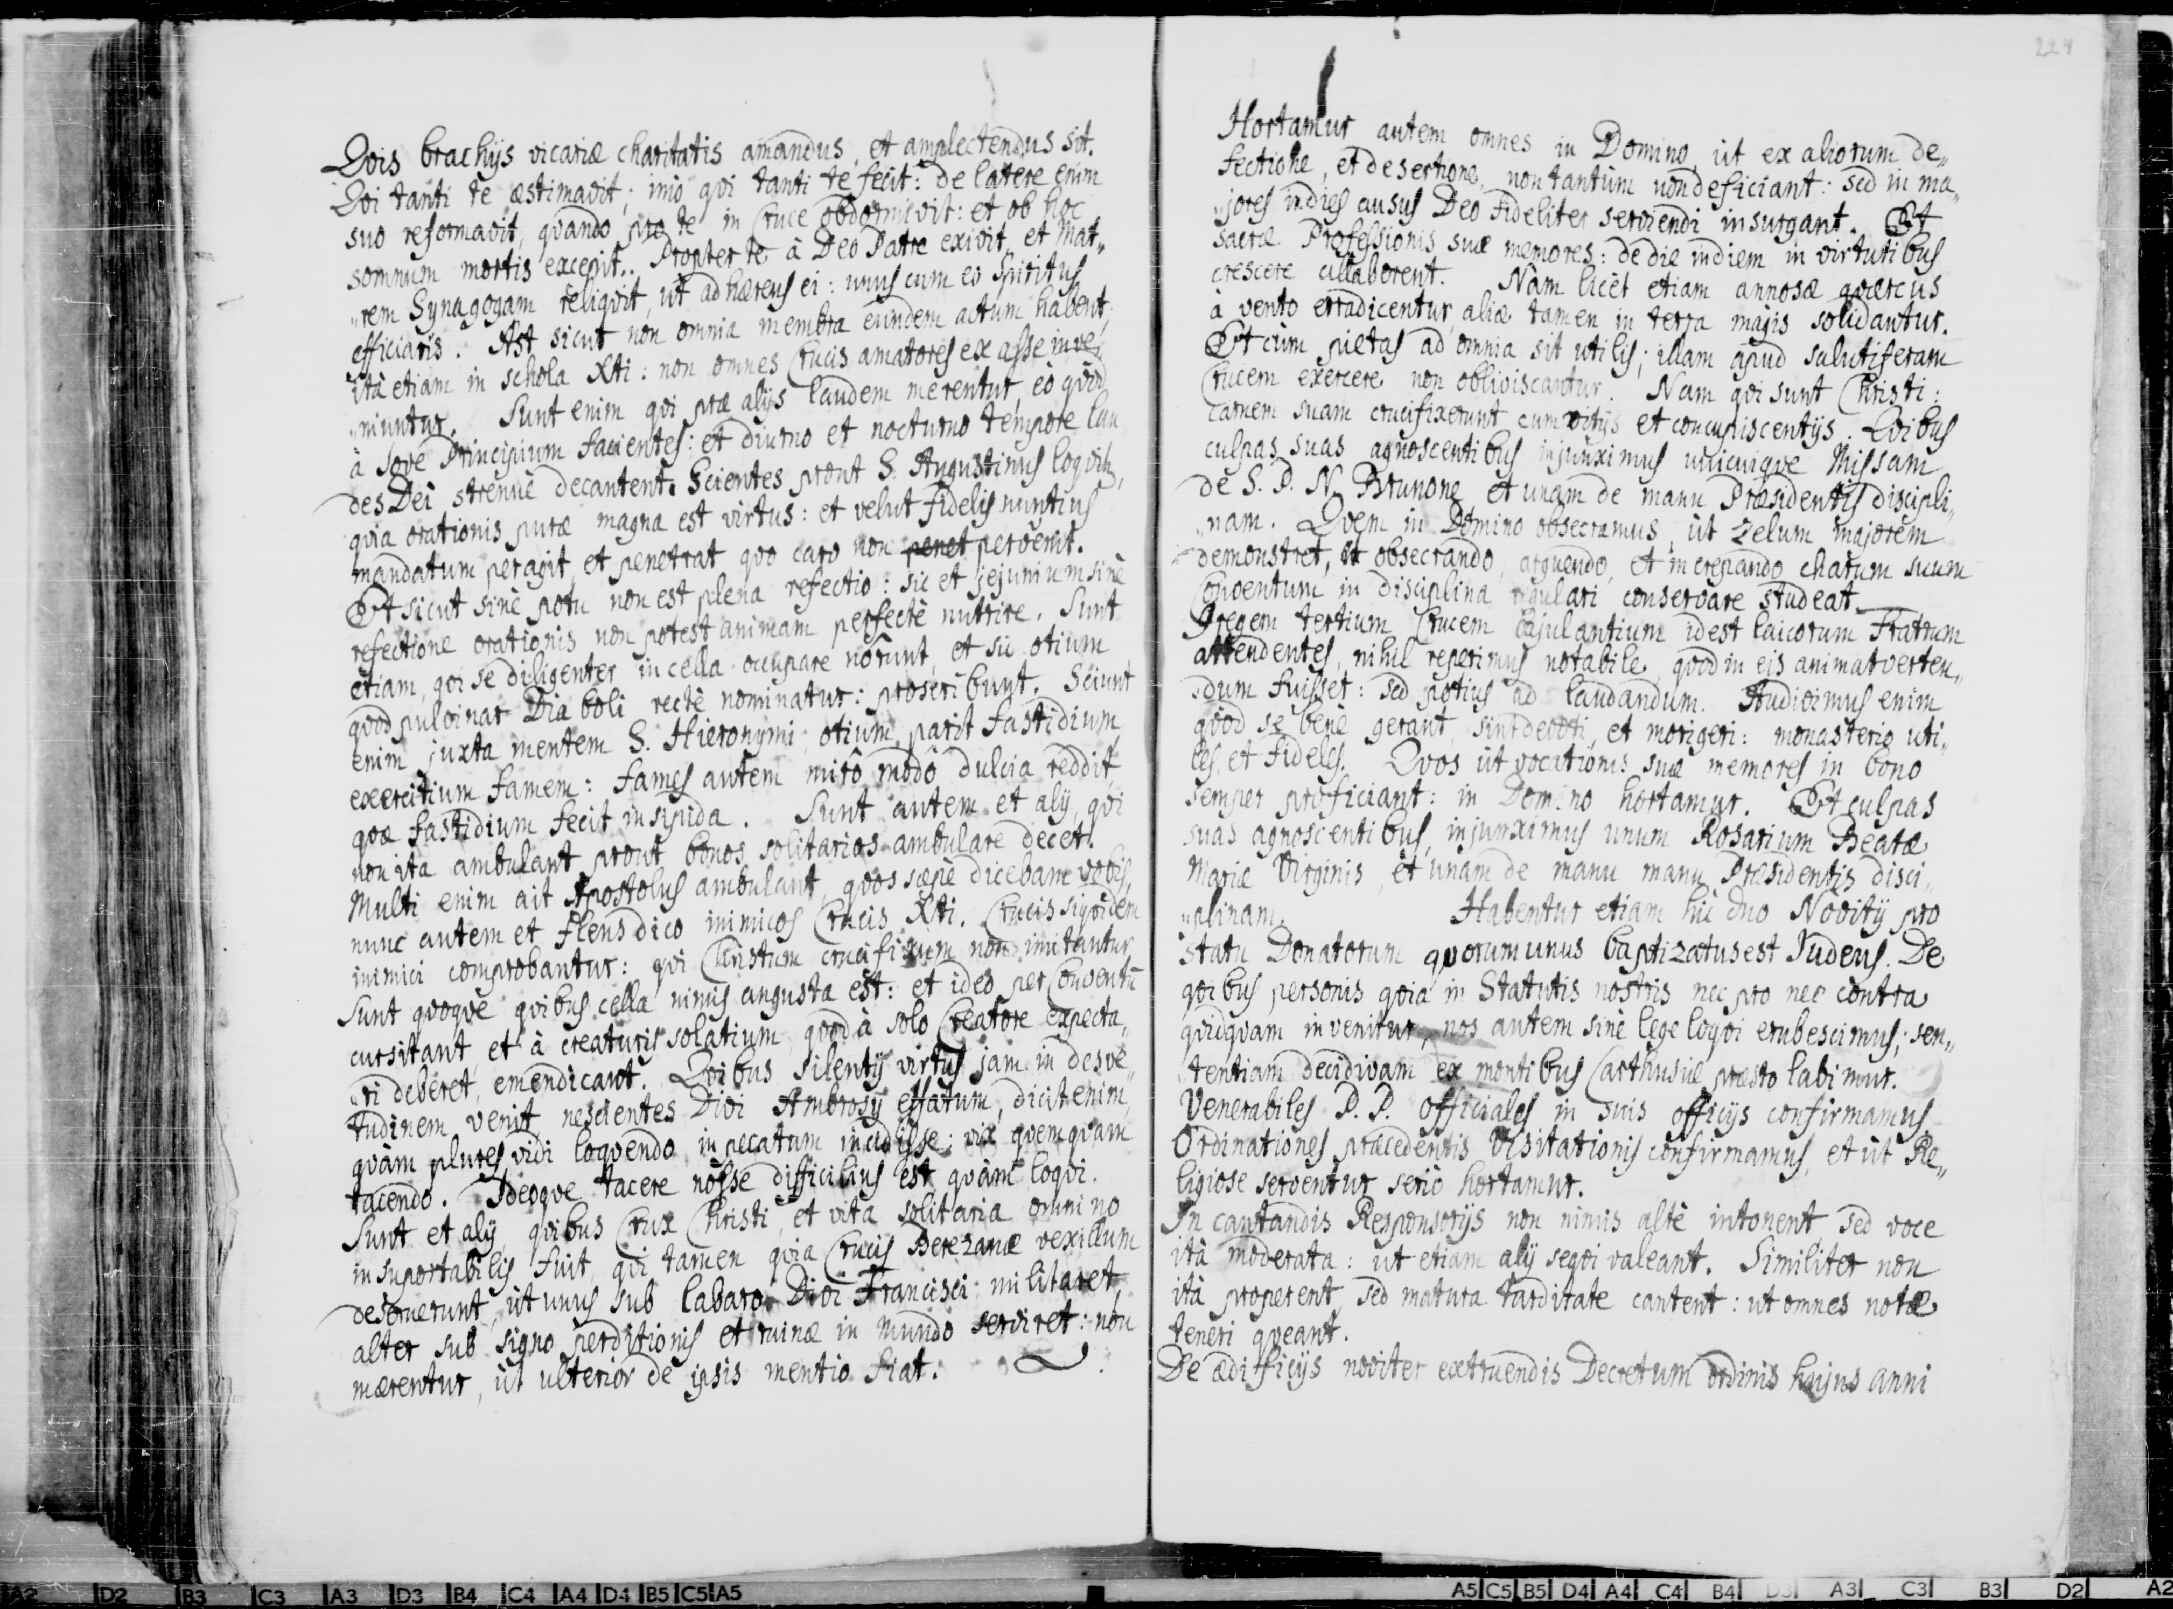 224
Qvis brachijs vicariæ charitatis amandus, et amplectendus sit.
Qvi tanti te æstimavit; imò qvi tanti te fecit: de latere enim
suo reformavit, qvando pro te in Cruce obdormivit: et ob hoc
somnum mortis excepit.. Propter te à Deo Patre exivit, et Mat„
„rem Synagogam reliqvit, ut adhærens ei: unus cum eo Spiritus
efficiaris. Ast sicut non omnia membra eundem actum habent,
ità etiam in schola Xti: non omnes Crucis amatores ex asse inve„
„niuntur. Sunt enim qvi præ alijs laudem merentur, eò qvòd
à Jove Principium facientes: et diurno et nocturno tempore lau
des Dei strenuè decantent. Scientes prout S. Augustinus loqvitur,
qvia orationis puræ magna est virtus: et velut fidelis nuntius
mandatum peragit, et penetrat qvo caro non penet pervenit.
Et sicut sinè potu non est plena refectio: sic et jejunium sinè
refectione orationis non potest animam perfectè nutrire. Sunt
etiam, qvi se diligenter in cella occupare nôrunt, et sic otium
qvod pulvinar Diaboli rectè nominatur: proscribunt. Sciunt
enim juxta mentem S. Hieronymi, otium parit fastidium,
exercitium famem: fames autem mirô modô dulcia reddit,
qvæ fastidium fecit insipida. Sunt autem et alij, qvi
non ita ambulant prout bonos solitarios ambulare decet.
Multi enim ait Apostolus ambulant, qvos sæpè dicebam vobis,
nunc autem et flens dico inimicos Crucis Xti. Crucis siqvidem
inimici comprobantur: qvi Christum crucifixum non imitantur
Sunt qvoqve qvibus cella nimis angusta est: et ideo per Conventū
cursitant, et à creaturis solatium, qvod à solo Creatore expecta„
„ri deberet, emendicant. Qvibus silentij virtus jam in desve„
tudinem venit, nescientes Divi Ambrosij effatum, dicit enim,
qvàm plures vidi loqvendo in pecatum incidisse; vix qvemqvam
tacendo. Ideoqve tacere nosse difficilius est qvàm loqvi.
Sunt et alij, qvibus Crux Christi, et vita solitaria omnino
insuportabilis fuit, qvi tamen qvia Crucis Berezanæ vexillum
deseruerunt, ut unus sub labaro Divi Francisci militaret,
alter sub signo perditionis et ruinæ in Mundo serviret: non
mærentur, ut ulterior de ipsis mentio fiat.
Hortamur autem omnes in Domino, ut ex aliorum de„
fectione, et desertione, non tantùm non deficiant: sed in ma„
„jores indies ausus Deo fideliter serviendi insurgant. Et
sacræ Professionis suæ memores: de die in diem in virtutibus
crescere allaborent. Nam licèt etiam annosæ qværcus
à vento erradicentur, aliæ tamen in terra magis solidantur.
Et cùm pietas ad omnia sit utilis; illam apud salutiferam
Crucem exercere non obliviscantur. Nam qvi sunt Christi:
carnem suam crucifixerunt cum vitijs et concupiscentijs. Qvibus
culpas suas agnoscentibus injunximus unicuiqve Missam
de S. P. N. Brunone, et unam de manu Præsidentis discipli„
„nam. Qvem in Domino obsecramus, ut zelum majorem
demonstret, et obsecrando, arguendo, et increpando, charum suum
Conventum in disciplina regulari conservare studeat.
Gregem tertium Crucem bajulantium id est laicorum Fratrum
attendentes, nihil reperimus notabile, qvod in eis animatverten„
„dum fuisset: sed potius ad laudandum. Audivimus enim
qvod se benè gerant, sint devoti, et morigeri: monasterio uti„
les, et fideles. Qvos ut vocationis suæ memores in bono
semper proficiant: in Domino hortamur. Et culpas
suas agnoscentibus, injunximus unum Rosarium Beatæ
Mariæ Virginis, et unam de manu manu Præsidentis disci„
„plinam. Habentur etiam hîc duo Novitij pro
statu Donatorum qvorum unus baptizatus est Judeus. De
qvibus personis qvia in Statutis nostris nec pro nec contra
qvidqvam invenitur, nos autem sinè lege loqvi erubescimus; sen„
„tentiam decidivam ex montibus Carthusiæ præsto labimur.
Venerabiles P. P. Officiales in suis officijs confirmamus
Ordinationes præcedentis Visitationis confirmamus, et ut Re„
ligiose serventur seriò hortamur.
In cantandis Responsorijs non nimis altè intonent sed voce
ità moderata: ut etiam alij seqvi valeant. Similiter non
ità properent, sed matura tarditate cantent: ut omnes notæ
teneri qveant.
De ædificijs noviter extruendis Decretum ordinis hujus anni
A2 D2 B3 C3 A3 D3 B4 C4 A4 D4 B5 C5 A5
A5 C5 B5 D4 A4 C4 B4 D3 A3 C3 B3 D2 A2